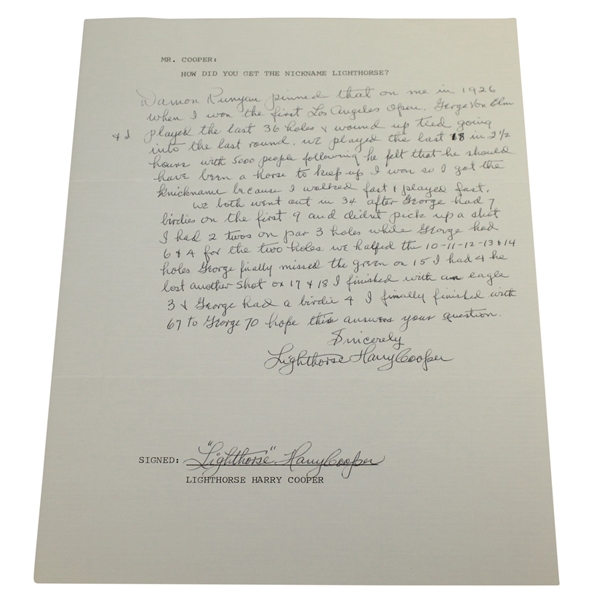 MR. COOPER:
HOW DID YOU GET THE NICKNAME LIGHTHORSE?
Damon Runyan pinned that on me in 1926
when I won the first Los Angeles Open. George Von Elm
& I played the last 36 holes & wound up tied going
into the last round. We played the last 18 in 2 1/2
hours with 5000 people following he felt that he should
have been a horse to keep up I won so I got the
nickname because I walked fast & played fast.
We both went out in 34 after George had 7
birdies on the first 9 and didn't pick up a shot
I had 2 twos on par 3 holes while George had
6 & 4 for the two holes we halfed the 10-11-12-13 & 14
holes George finally missed the green on 15 I had 4 he
lost another shot on 17 & 18 I finished with an eagle
3 & George had a birdie 4 I finally finished with
67 to George 70 hope this answers your question.
Sincerely
Lighthorse Harry Cooper
SIGNED: "Lighthorse" Harry Cooper
LIGHTHORSE HARRY COOPER